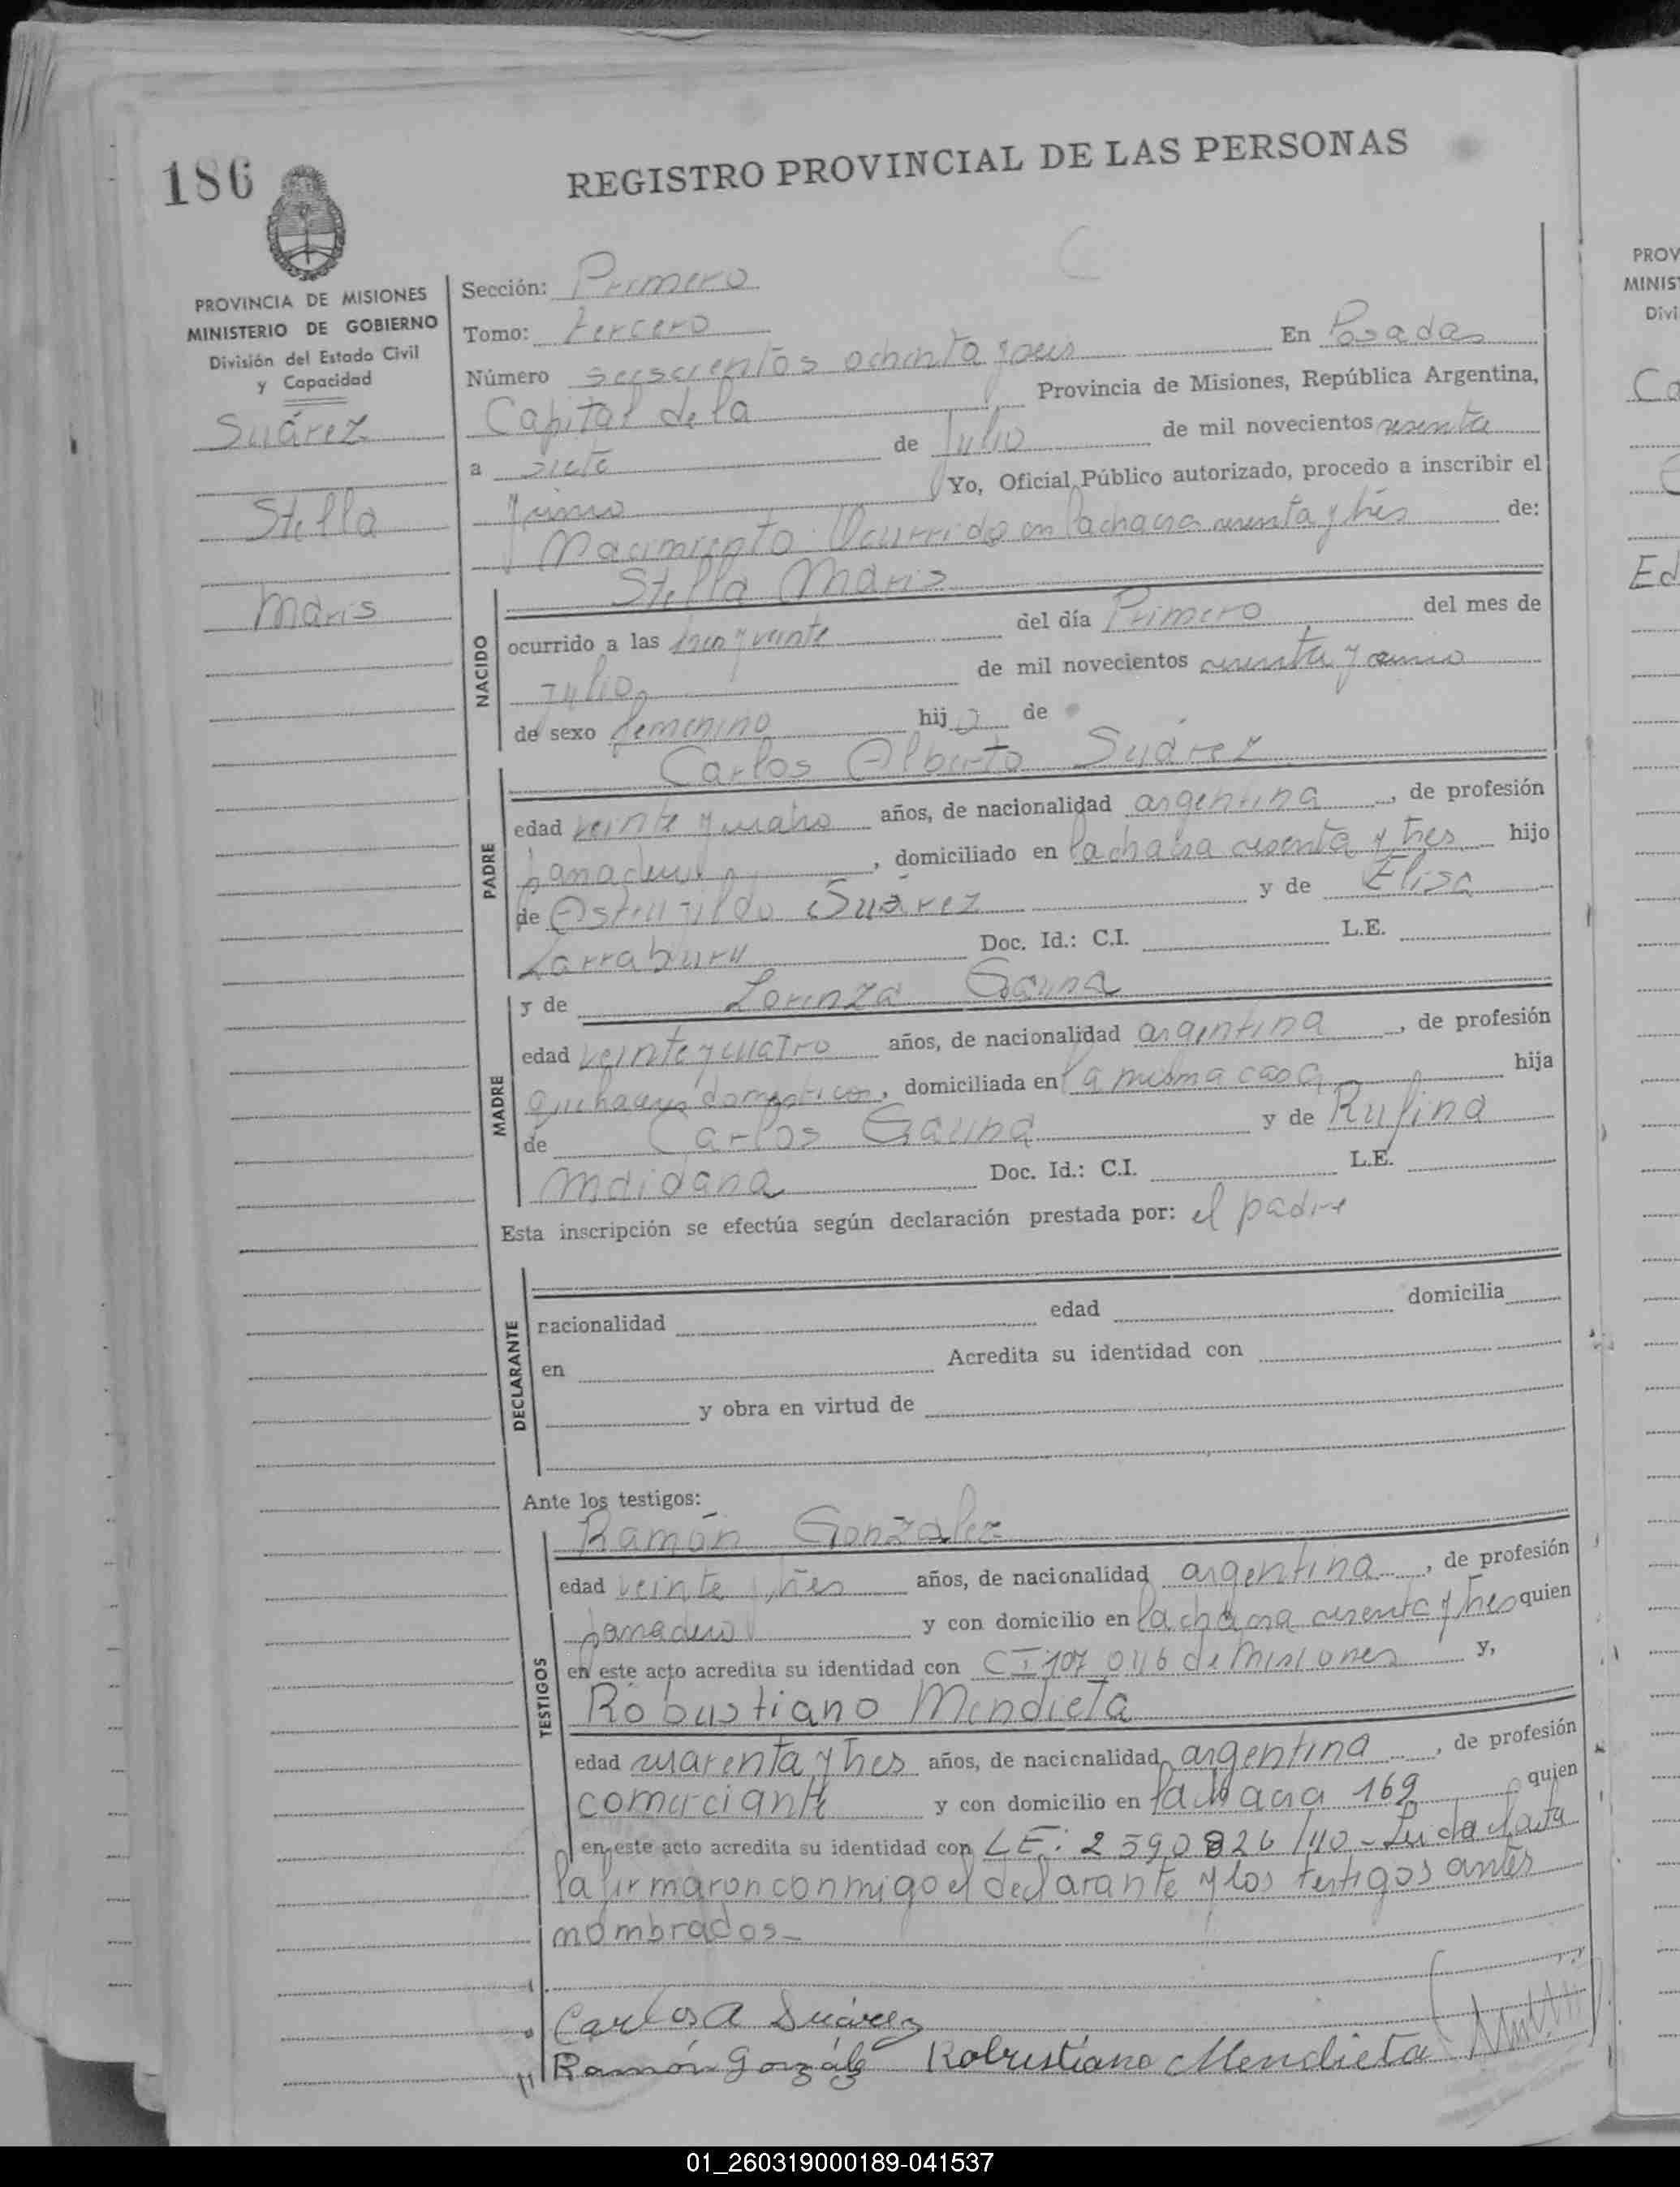 186
REGISTRO PROVINCIAL DE LAS PERSONAS
PROVINCIA DE MISIONES
MINISTERIO DE GOBIERNO
División del Estado Civil
y Capacidad
Suárez
Stella
Maris
C
Sección: Primero
Tomo: tercero
Número seiscientos ochenta y seis En Posadas
Capital de la Provincia de Misiones, República Argentina,
a siete de Julio de mil novecientos sesenta
y uno Yo, Oficial Público autorizado, procedo a inscribir el
Nacimiento Ocurrido en la chacra sesenta y tres de:
Stella Maris
NACIDO
ocurrido a las tres y veinte del día Primero del mes de
Julio de mil novecientos sesenta y uno
de sexo femenino hij a de
Carlos Alberto Suárez
PADRE
edad veinte y cuatro años, de nacionalidad argentina, de profesión
panadero, domiciliado en la chacra sesenta y tres hijo
de Suárez y de Elisa
Larraburu Doc. Id.: C.I. L.E.
y de Lorenza Gauna
MADRE
edad veinte y cuatro años, de nacionalidad argentina, de profesión
quehaceres domesticos, domiciliada en la misma casa hija
de Carlos Gauna y de Rufina
Maidana Doc. Id.: C.I. L.E.
Esta inscripción se efectúa según declaración prestada por: el padre
DECLARANTE
nacionalidad edad domicilia
en Acredita su identidad con
y obra en virtud de
Ante los testigos:
Ramón Gonzalez
TESTIGOS
edad veinte y tres años, de nacionalidad argentina, de profesión
panadero y con domicilio en la chacra sesenta y tres quien
en este acto acredita su identidad con CI 107.046 de Misiones y,
Robustiano Mendieta
edad cuarenta y tres años, de nacionalidad argentina, de profesión
comerciante y con domicilio en la chacra 169 quien
en este acto acredita su identidad con LE: 2590826/40 - Leida el acta
la firmaron conmigo el declarante y los testigos antes
nombrados -
Carlos A Suárez
Ramón González Robustiano Mendieta
PROV
MINIS
Divi
Ca
Ed
01_260319000189-041537